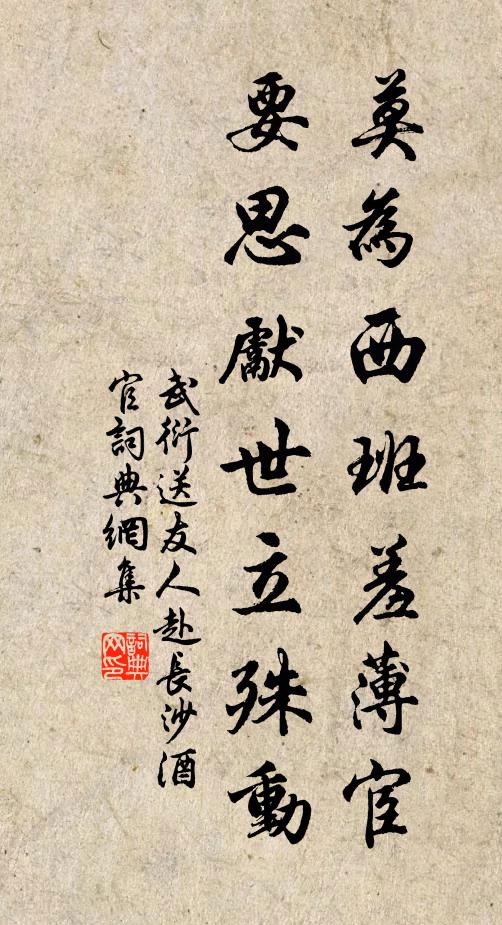 莫為西班羞薄宦
要思獻世立殊動
武衍送友人赴長沙酒
官詞典網集
詞典
网印